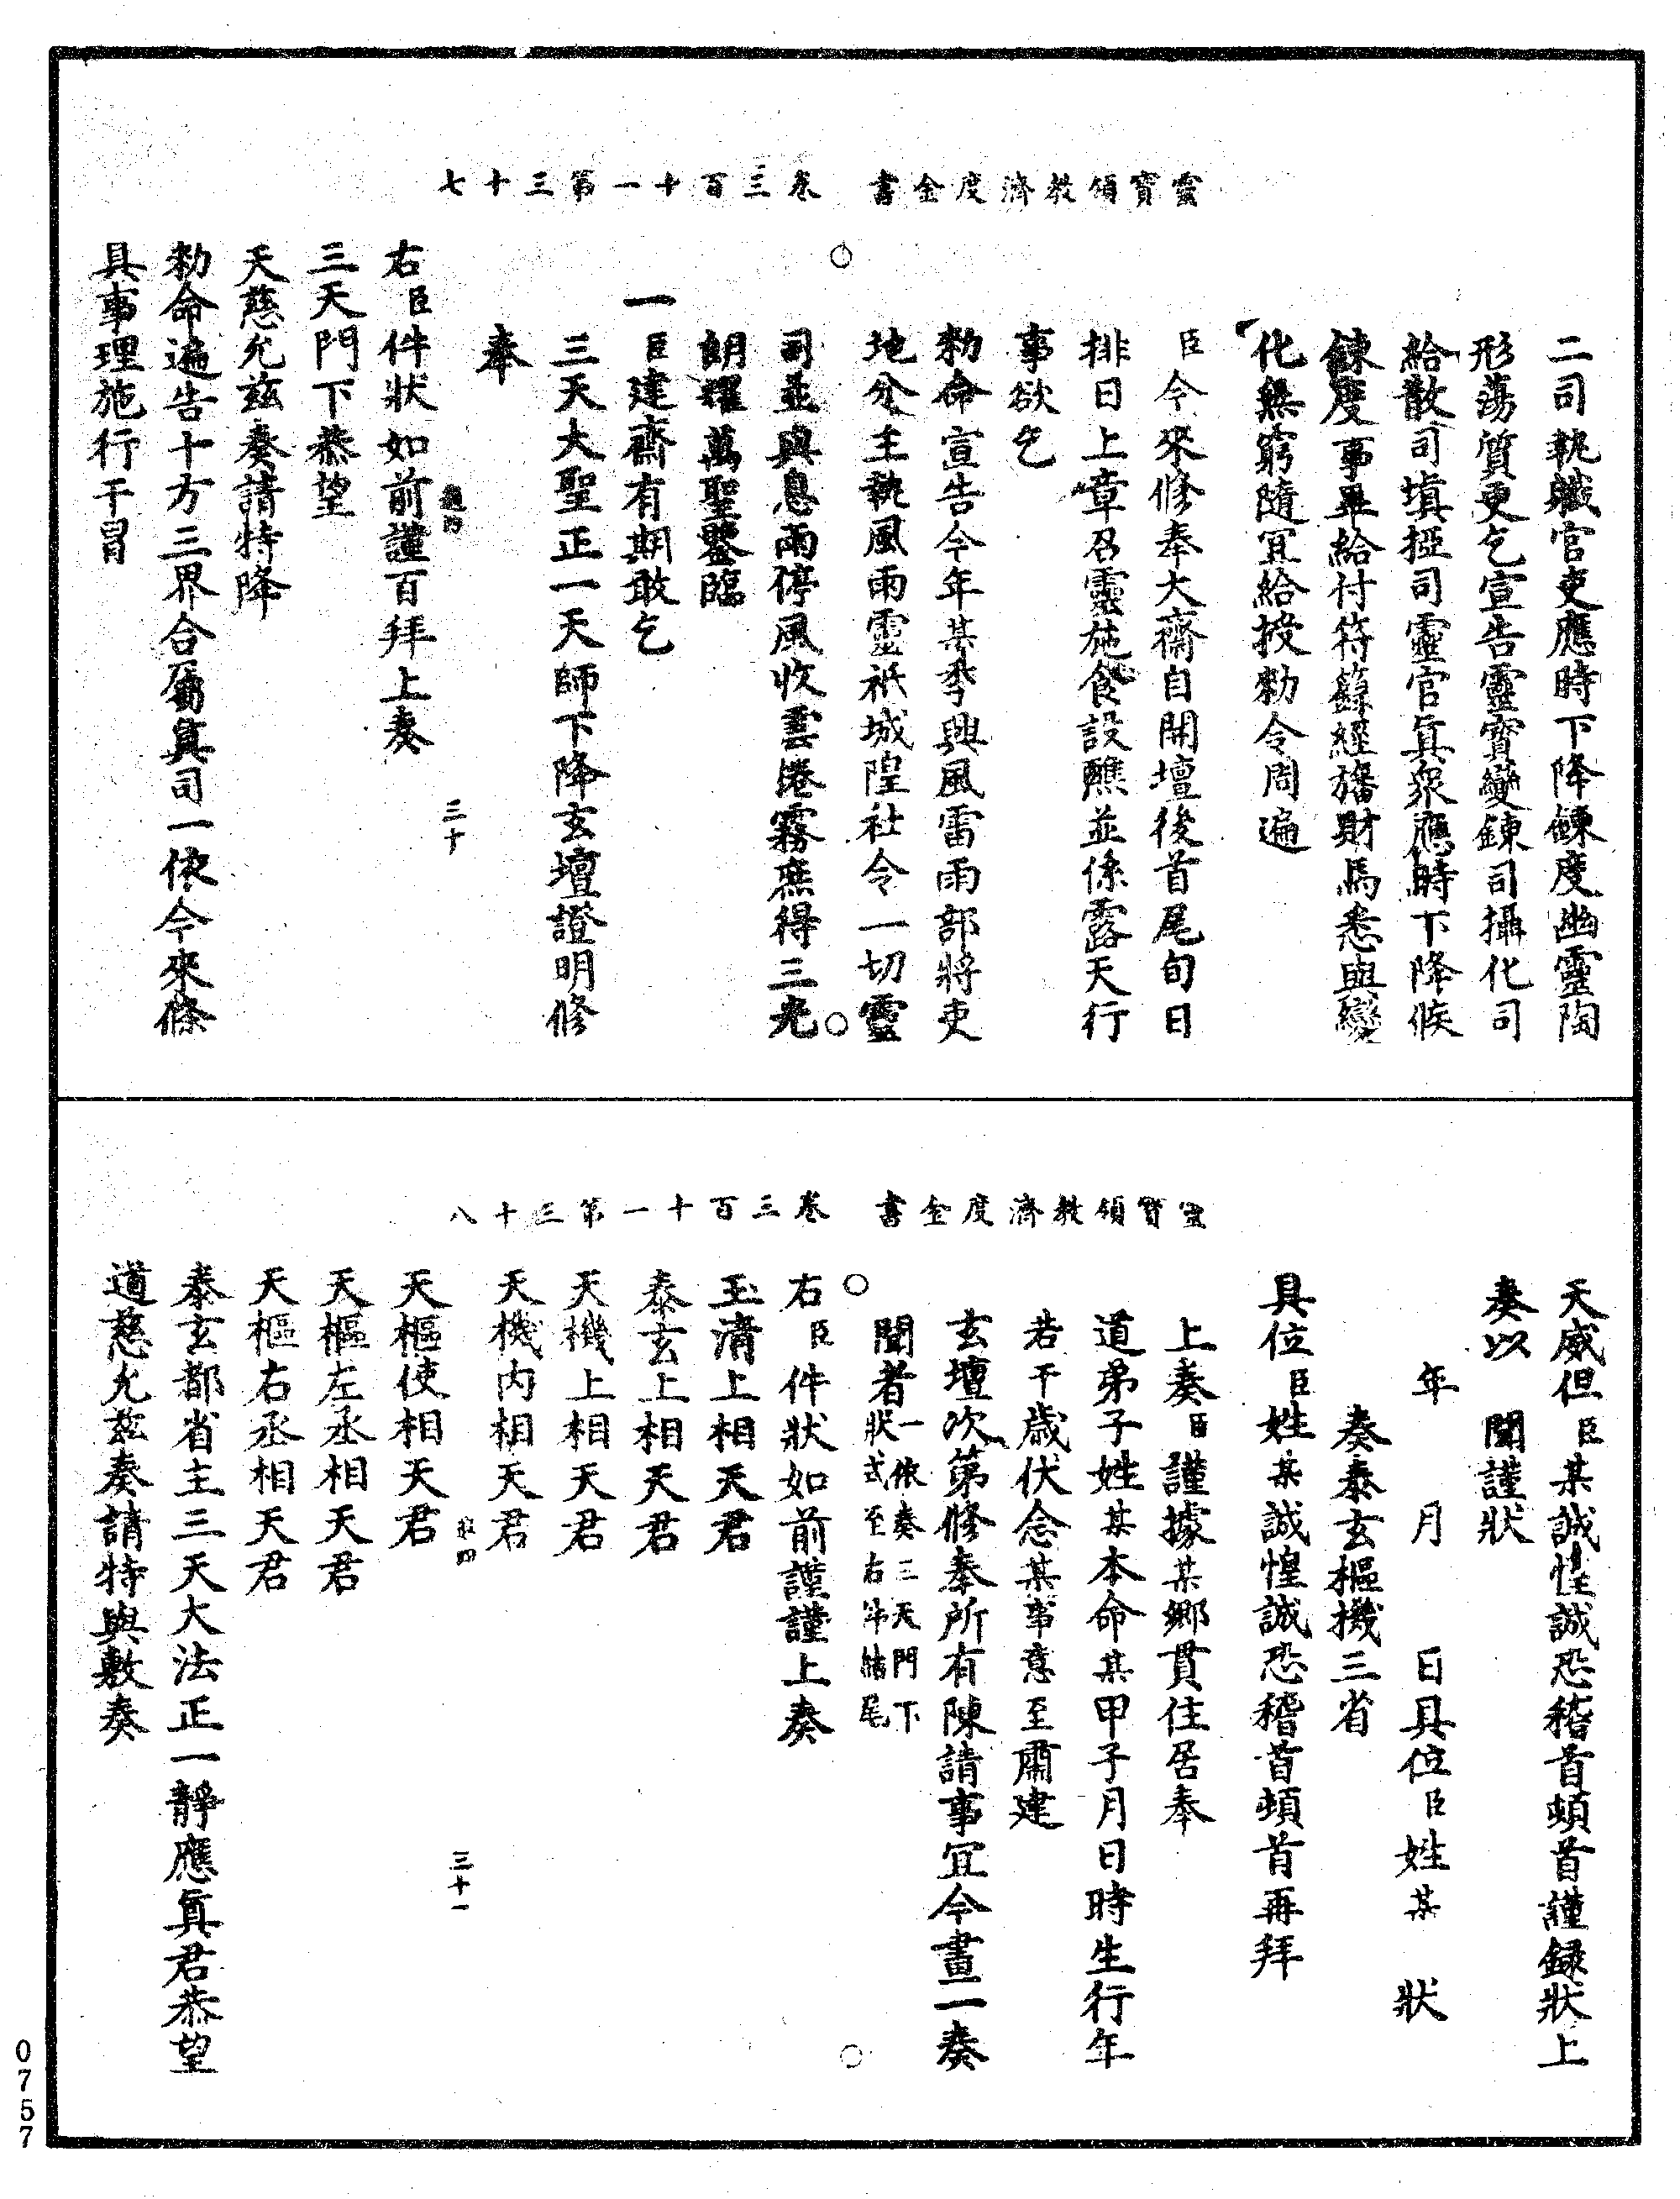 靈寶領教濟度金書　卷三百十一第三十七
二司執職官吏應時下降鍊度幽靈陶
形蕩質更乞宣告靈寶變鍊司攝化司
給散司塡掗司靈官眞衆應時下降候
鍊度事畢給付符籙經旛財馬悉與變
化無窮隨宜給授勑令周遍
臣今來修奉大齋自開壇後首尾旬日
排日上章召靈施食設醮並係露天行
事欲乞
勑命宣告今年某季興風雷雨部將吏
地分主執風雨靈祇城隍社令一切靈
司並與息雨停風收雲捲霧庶得三光
朗耀萬聖鑒臨
一臣建齋有期敢乞
三天大聖正一天師下降玄壇證明修
奉
三十
右臣件狀如前謹百拜上奏
三天門下恭望
天慈允茲奏請特降
勑命遍告十方三界合屬眞司一依今來條
具事理施行干冒
靈寶領教濟度金書　卷三百十一第三十八
天威但臣某誠惶誠恐稽首頓首謹録狀上
奏以　聞謹狀
年　月　日具位臣姓某　狀
奏泰玄樞機三省
具位臣姓某誠惶誠恐稽首頓首再拜
上奏臣謹據某鄉貫住居奉
道弟子姓某本命某甲子月日時生行年
若干歲伏念某事意至肅建
玄壇次第修奉所有陳請事宜今畫一奏
聞者一依奏三天門下狀式至右具結尾
右臣件狀如前謹謹上奏
玉清上相天君
泰玄上相天君
天機上相天君
天機內相天君
三十一
天樞使相天君
天樞左丞相天君
天樞右丞相天君
泰玄都省主三天大法正一靜應眞君恭望
道慈允茲奏請特與敷奏
0757